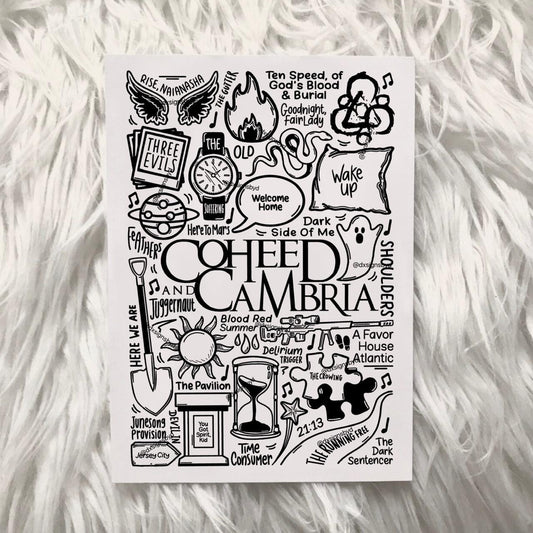 RISE, NAIANASHA
THE GUTTER
Ten Speed, of
God's Blood
& Burial
Goodnight,
Fair Lady
THREE
EVILS
THE
OLD
SUFFERING
Welcome
Home
Wake
up
FEATHERS
Here To Mars
Dark
Side Of Me
@dxsignsbyd
SHOULDERS
COHEED
AND CAMBRIA
HERE WE ARE
Juggernaut
Blood Red
Summer
Delirium
TRIGGER
A Favor
House
Atlantic
The Pavilion
THE CROWING
Junesong
Provision
DEVIL IN
Jersey City
You
Got
Spirit,
Kid
TIME
CONSUMER
21:13
The
Dark
Sentencer